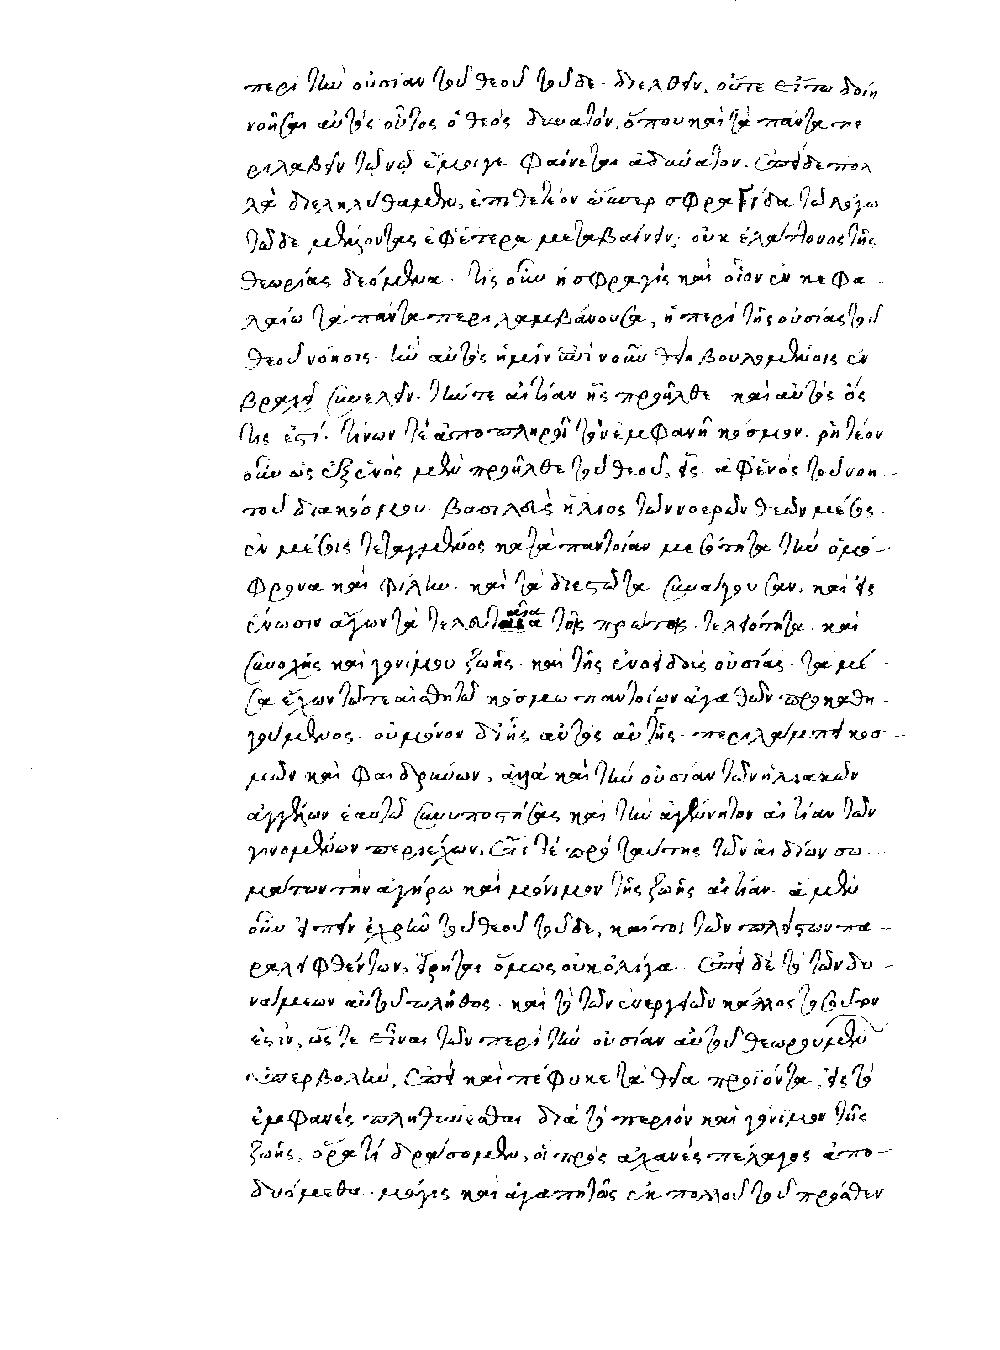 περὶ τὴν οὐσίαν τοῦ θεοῦ τοῦδε· διελθεῖν, οὔτε εἴ τῳ δοίη
νοῆσαι αὐτὸς οὗτος ὁ θεὸς δυνατόν, ὅπου καὶ τὰ πάντα πε
ριλαβεῖν τῷ νῷ ἔμοιγε φαίνεται ἀδύνατον. ἐπεὶ δὲ πολ
λὰ διεληλύθαμεν, ἐπιθετέον ὥσπερ σφραγῖδα τῷ λόγῳ
τῷδε μέλλοντας ἐφ' ἕτερα μεταβαίνειν, οὐκ ἐλάττονος τῆς
θεωρίας δεόμενα. τίς οὖν ἡ σφραγὶς καὶ οἷον ἐν κεφα
λαίῳ τὰ πάντα περιλαμβάνουσα, ἡ περὶ τῆς οὐσίας τοῦ
θεοῦ νόησις· ἣν αὐτὸς ἡμῖν ἐπὶ νοῦν θείη βουλομένοις ἐν
βραχεῖ συνελεῖν· τήν τε αἰτίαν ἧς προῆλθε καὶ αὐτὸς ὅς
τίς ἐστι· τίνων τε ἀποπληροῖ τὸν ἐμφανῆ κόσμον. ῥητέον
οὖν ὡς ἐξ ἑνὸς μὲν προῆλθε τοῦ θεοῦ, εἷς ἀφ' ἑνὸς τοῦ νοη
τοῦ διακόσμου βασιλεὺς ἥλιος τῶν νοερῶν θεῶν μέσος
ἐν μέσοις τεταγμένος κατὰ παντοίαν μεσότητα τὴν ὁμό
φρονα καὶ φίλην· καὶ τὰ διεστῶτα συνάγουσαν, καὶ εἰς
ἕνωσιν ἄγων τὰ τελευταῖα τοῖς πρώτοις· τελειότητα καὶ
συνοχῆς καὶ γονίμου ζωῆς· καὶ τῆς ἑνοειδοῦς οὐσίας· τὰ μέ
σα ἔχων τῷ τε αἰσθητῷ κόσμῳ παντοίων ἀγαθῶν προκαθη
γούμενος· οὐ μόνον δι' ἧς αὐτὸς αὐγῆς περιλάμπει κοσ
μῶν καὶ φαιδρύνων, ἀλλὰ καὶ τὴν οὐσίαν τῶν ἡλιακῶν
ἀγγέλων ἑαυτῷ συνυποστήσας καὶ τὴν ἀγέννητον αἰτίαν τῶν
γινομένων περιέχων, ἔτι τε πρὸ ταύτης τῶν ἀιδίων σω
μάτων τὴν ἀγήρω καὶ μόνιμον τῆς ζωῆς αἰτίαν. ἃ μὲν
οὖν εἰπεῖν ἐχρῆν τοῦ θεοῦ τοῦδε, καίτοι τῶν πλείστων πα
ραλειφθέντων, εἴρηται ὅμως οὐκ ὀλίγα. ἐπεὶ δὲ τὸ τῶν δυ
νάμεων αὐτοῦ πλῆθος καὶ τὸ τῶν ἐνεργειῶν κάλλος τοσοῦτόν
ἐστιν, ὥστε εἶναι τῶν περὶ τὴν οὐσίαν αὐτοῦ θεωρουμένων
ὑπερβολήν, ἐπεὶ καὶ πέφυκε τὰ θεῖα προϊόντα, εἰς τὸ
ἐμφανὲς πληθύνεσθαι διὰ τὸ περιὸν καὶ γόνιμον τῆς
ζωῆς, ὅρα τί δράσομεν, οἳ πρὸς ἀχανὲς πέλαγος ἀπο
δυόμεθα μόγις καὶ ἀγαπητῶς ἐκ πολλοῦ τοῦ πρόσθεν